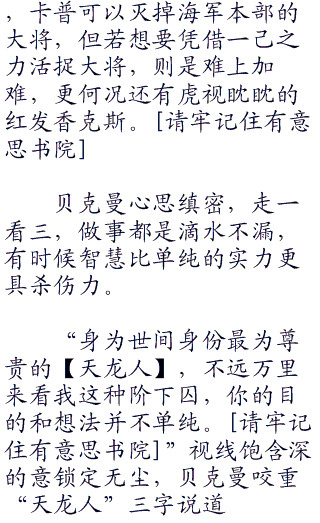 ，卡普可以灭掉海军本部的
大将，但若想要凭借一己之
力活捉大将，则是难上加
难，更何况还有虎视眈眈的
红发香克斯。[请牢记住有意
思书院]
贝克曼心思缜密，走一
看三，做事都是滴水不漏，
有时候智慧比单纯的实力更
具杀伤力。
“身为世间身份最为尊
贵的【天龙人】，不远万里
来看我这种阶下囚，你的目
的和想法并不单纯。[请牢记
住有意思书院]”视线饱含深
的意锁定无尘，贝克曼咬重
“天龙人”三字说道